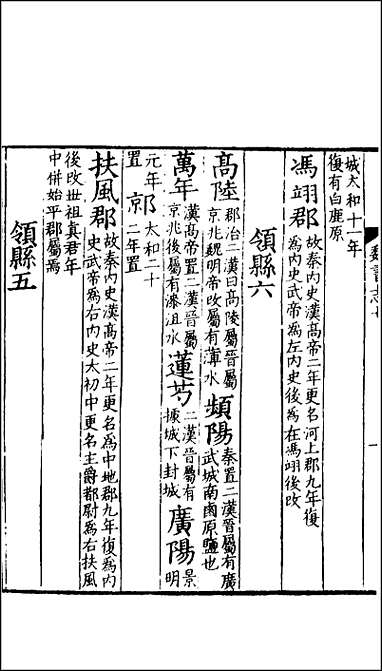 城太和十一年
復有白鹿原
馮翊郡 故秦内史漢髙帝二年更名河上郡九年復
為内史武帝為左内史後為在馮翊後改
領縣六
髙陸 郡治二漢曰髙陵屬晉屬
京兆魏明帝改屬有薄水
頻陽 秦置二漢晉屬有廣
武城南鹵原鹽也
萬年 漢髙帝置二漢晉屬
京兆後屬有漆沮水
蓮芍 二漢晉屬有
據城下封城
廣陽 景
明
元年
置
鄣 太和二十
二年置
扶風郡 故秦内史漢髙帝二年更名為中地郡九年復為内
史武帝為右内史太初中更名主爵都尉為右扶風
後改世祖真君年
中併始平郡屬焉
領縣五